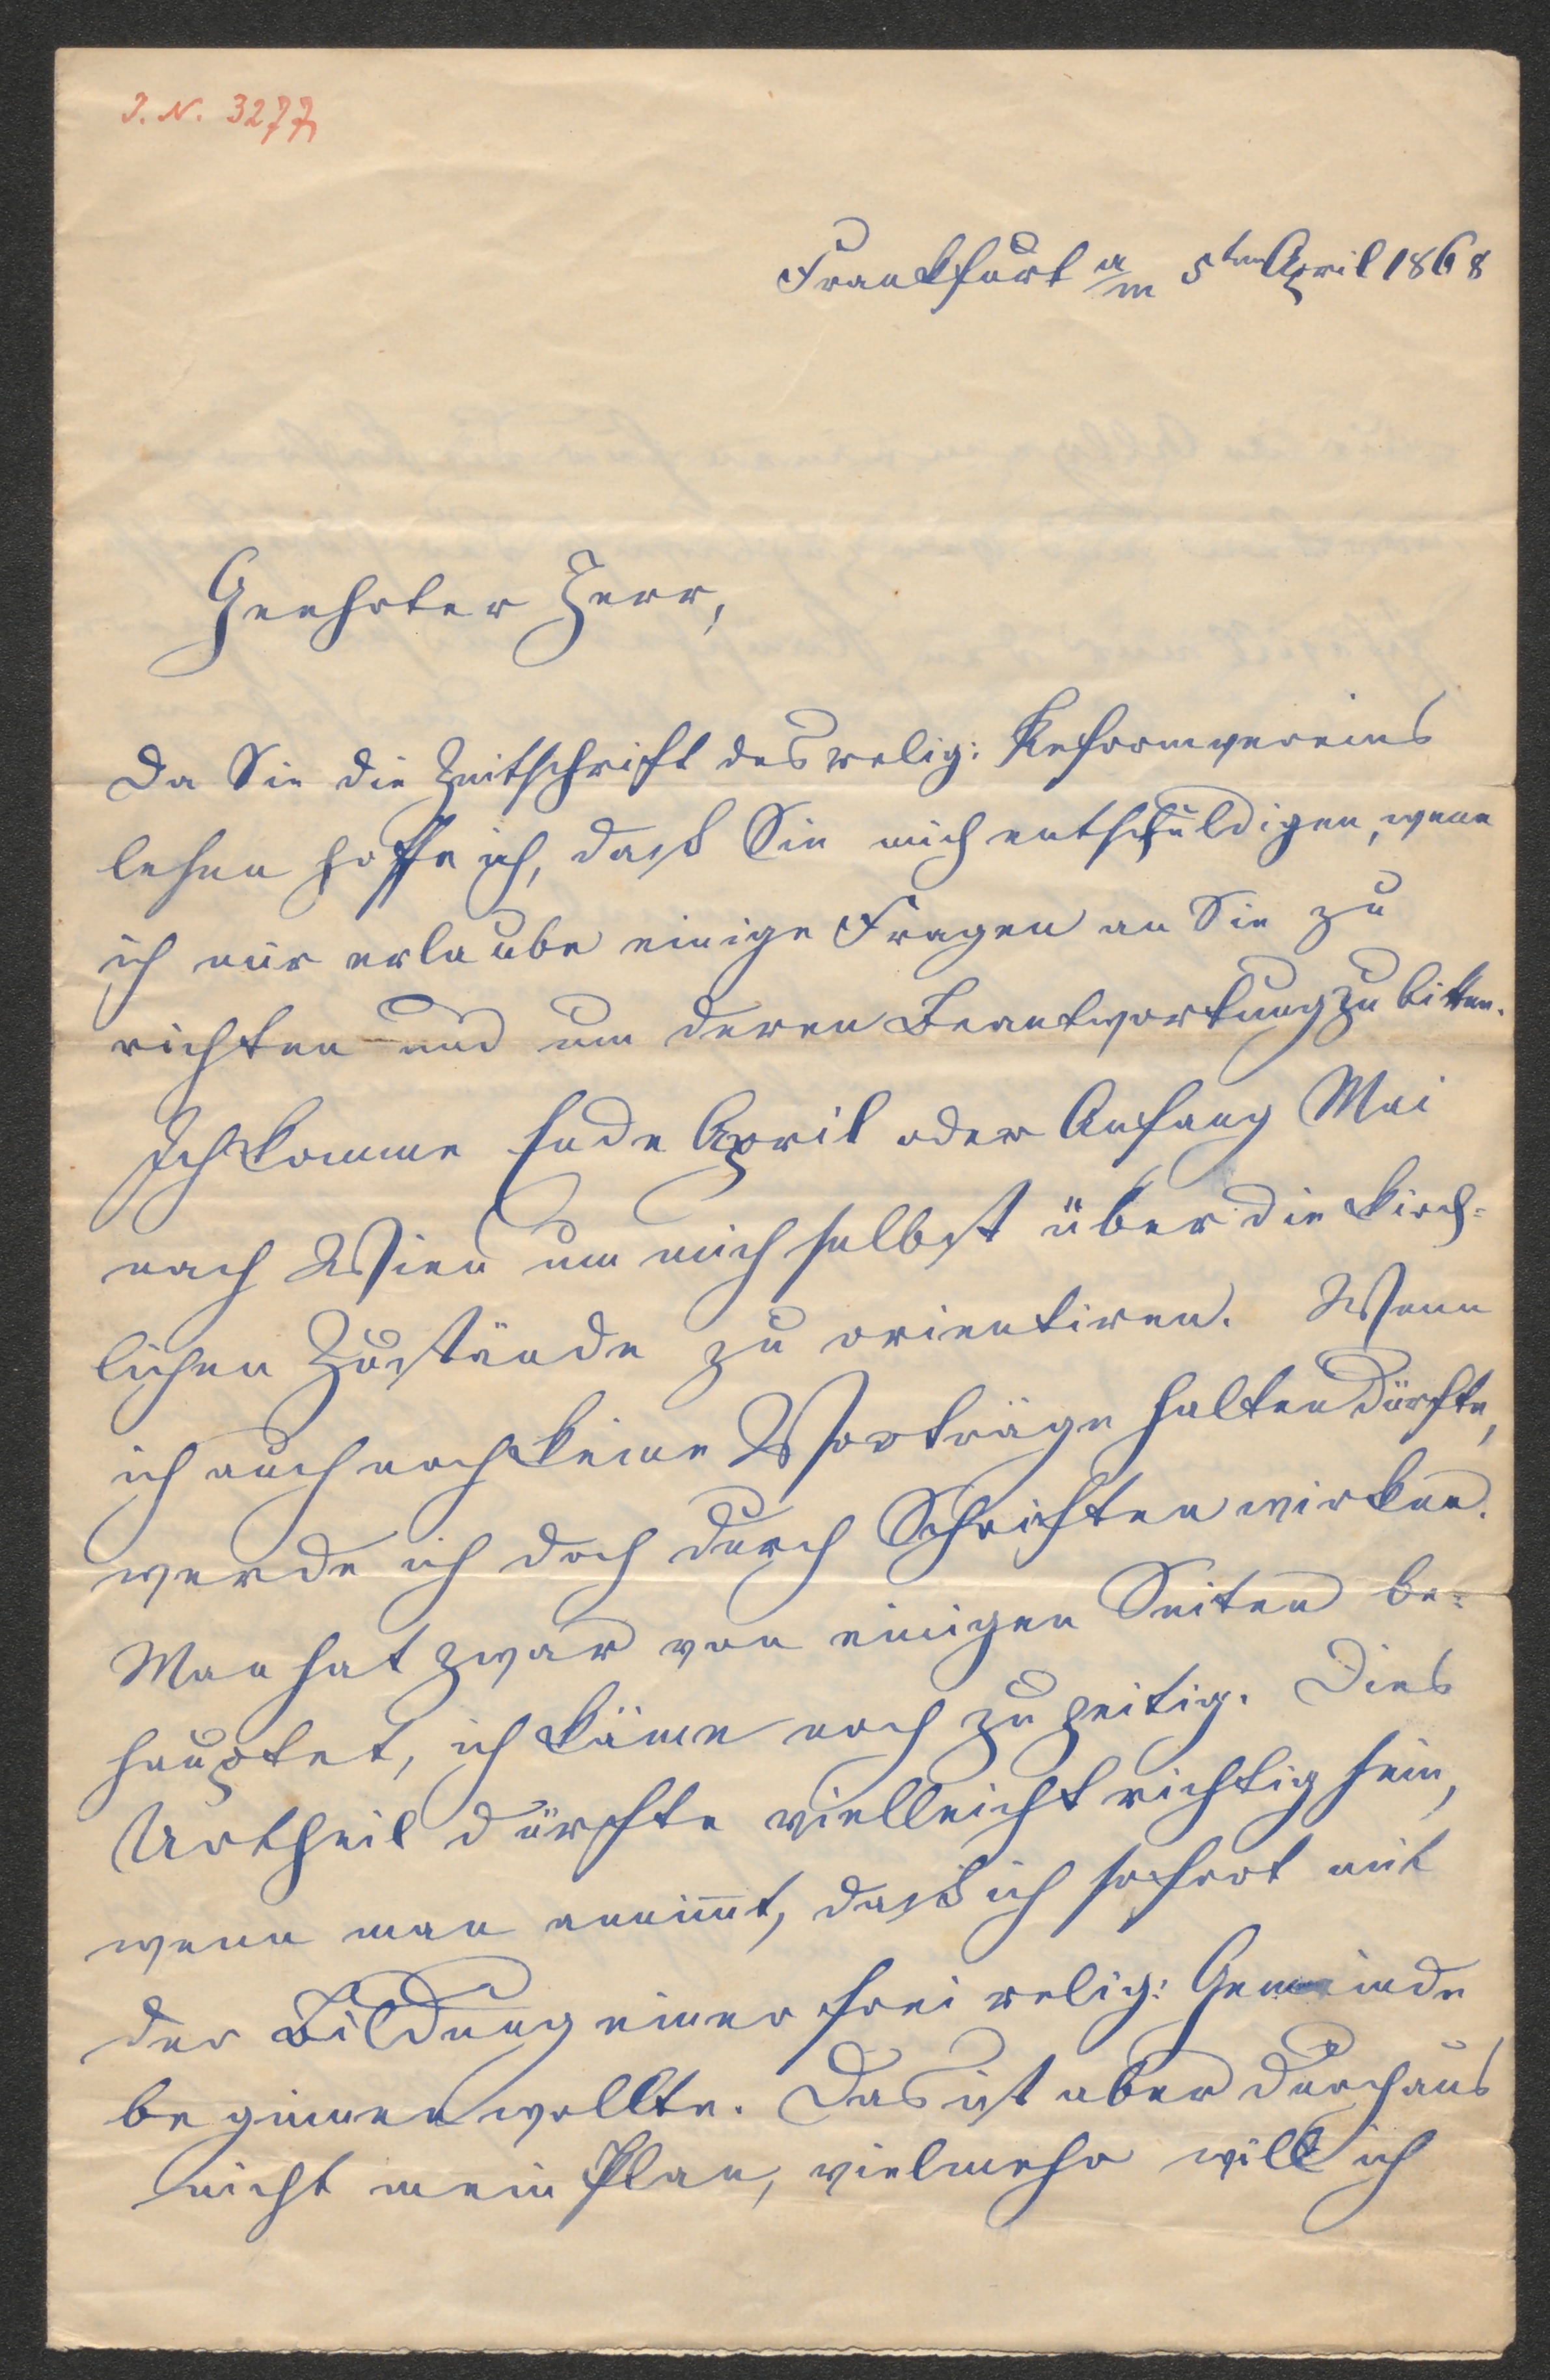 J. N. 3277
Frankfurt a/m 5ten April 1868
Geehrter Herr,
Da Sie die Zeitschrift des relig: Reformvereins
lesen hoffe ich, dass Sie mich entschuldigen, wenn
ich mir erlaube einige Fragen an Sie zu
richten und um deren Beantwortung zu bitten.
Ich komme Ende April oder Anfang Mai
nach Wien um mich selbst über die kirch-
lichen Zustände zu orientiren. Wenn
ich auch noch keine Vorträge halten dürfte,
werde ich doch durch Schriften wirken.
Man hat zwar von einigen Seiten be-
hauptet, ich käme noch zu zeitig. Dies
Urtheil dürfte vielleicht richtig sein,
wenn man annim̅t, dass ich sofort mit
der Bildung einer frei relig: Gemeinde
beginnen wollte. Das ist aber durchaus
nicht mein Plan, vielmehr will ich